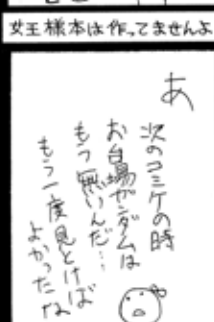 女王様本は作ってませんよ
あ
次のコミケの時
お台場ガンダムは
もう無いんだ…
もう一度見とけば
よかったな